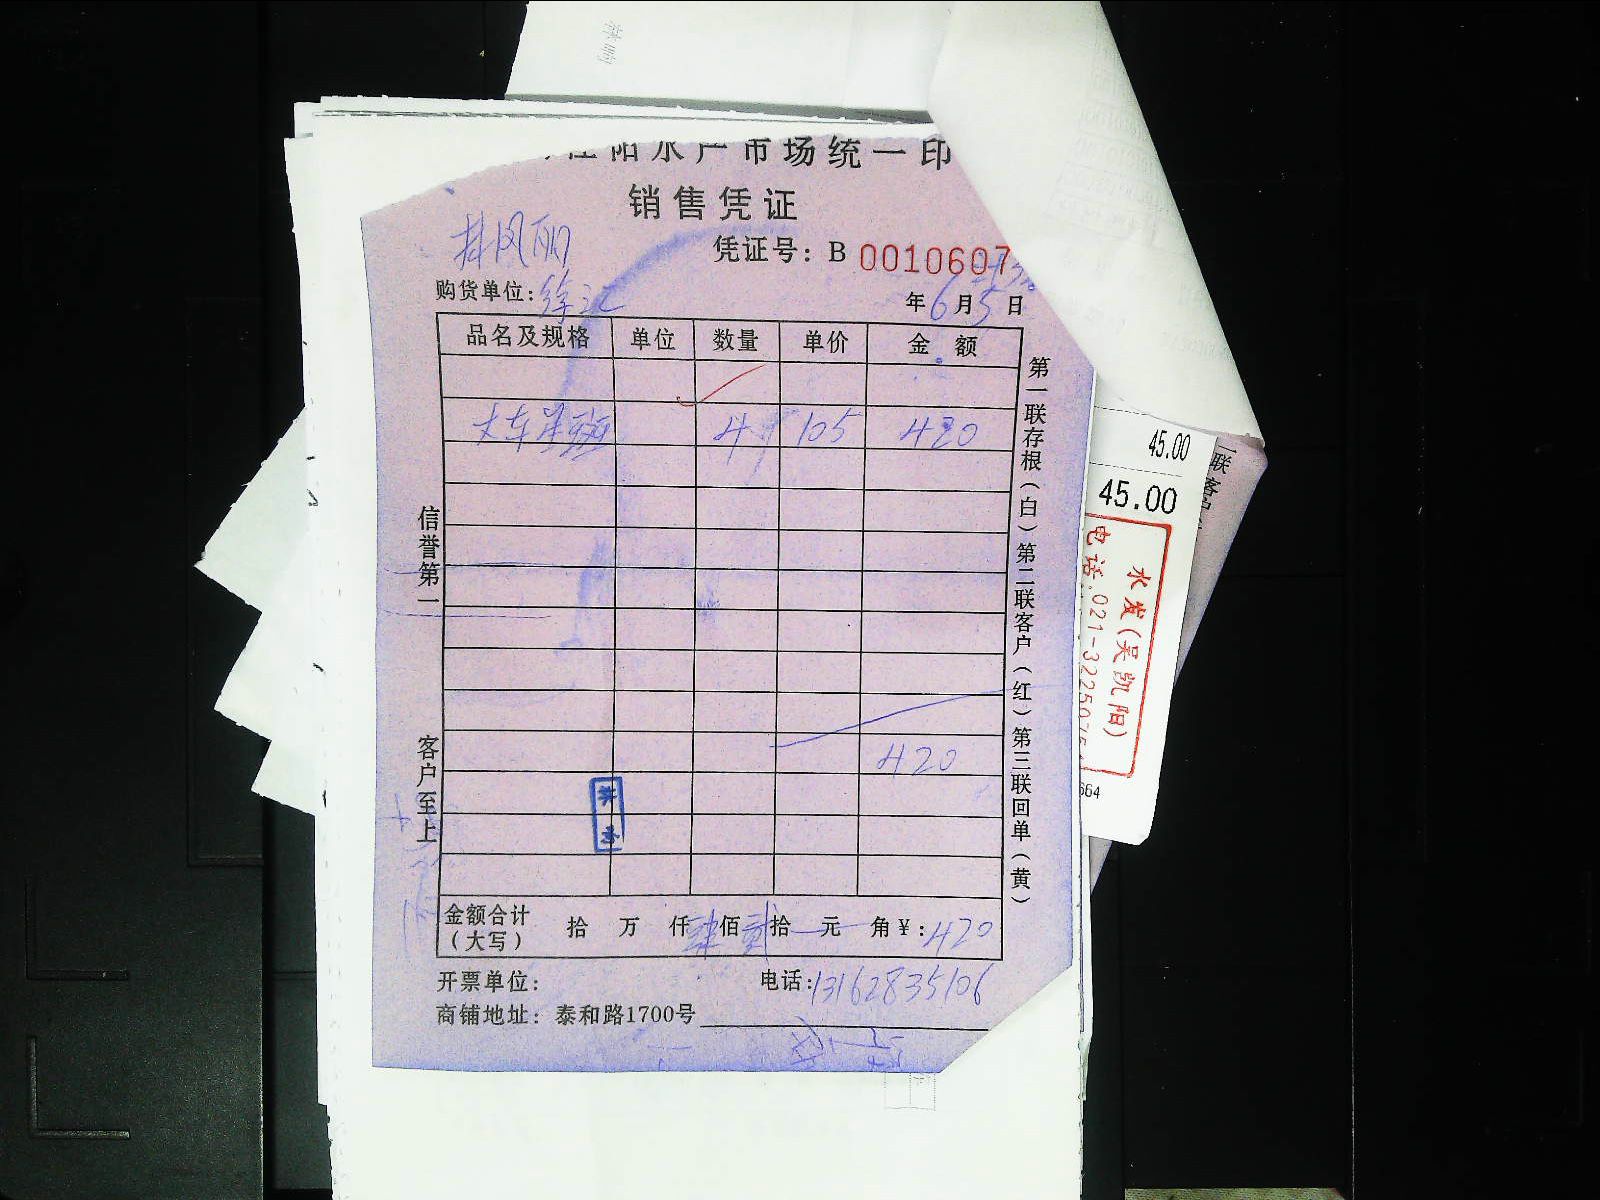 江阳水产市场统一印
销售凭证
凭证号：B 0010607
井凤丽
购货单位：徐汇
年6月5日
品名及规格 单位 数量 单价 金额
4 105 420
420
信誉第一
客户至上
第一联存根（白）第二联客户（红）第三联回单（黄）
金额合计（大写） 拾 万 仟肆佰贰拾 元 角￥：420
开票单位：
电话：13162835106
商铺地址：泰和路1700号
45.00
45.00
水发（吴凯阳）
电话：021-3225075
664
联客